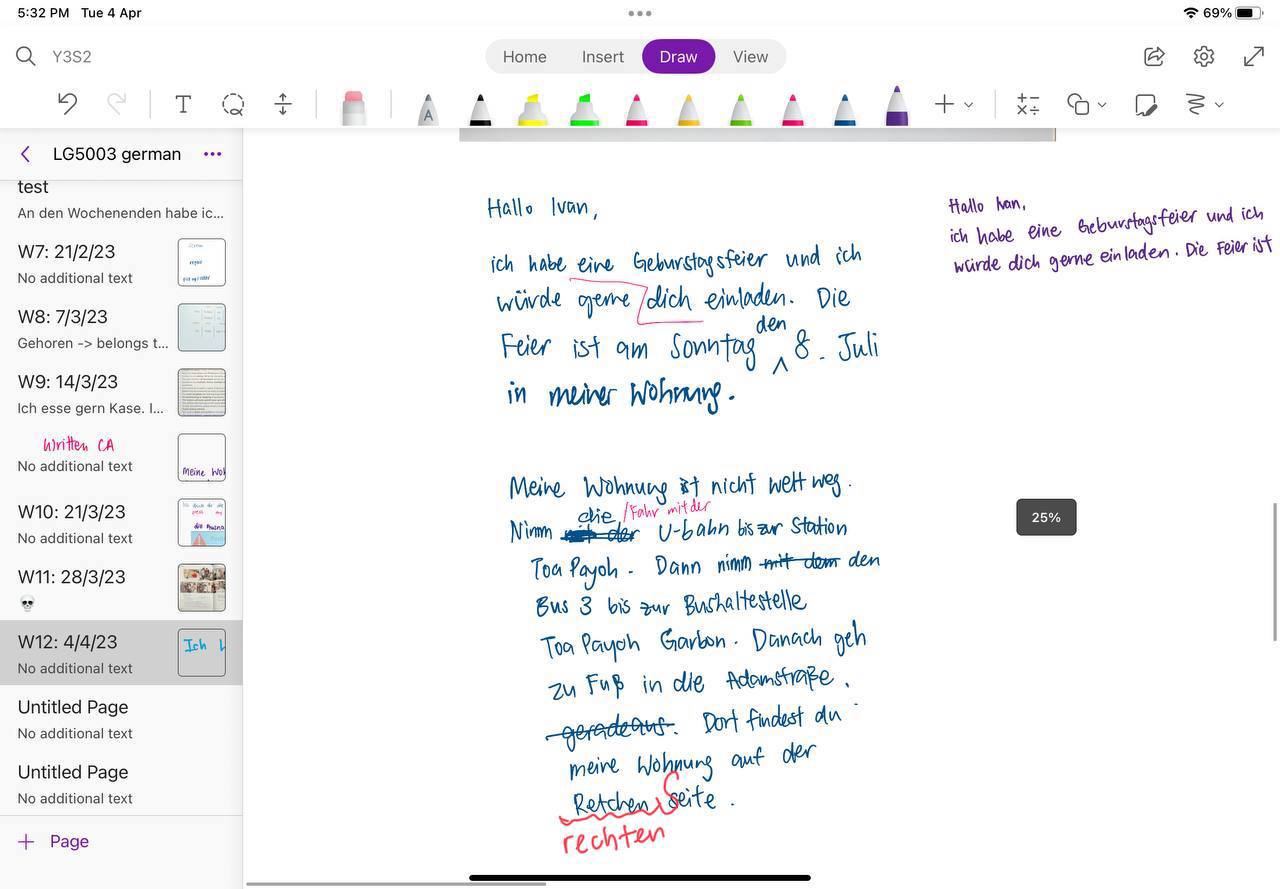 5:32 PM Tue 4 Apr
69%
Y3S2
Home Insert Draw View
A
LG5003 german
test
An den Wochenenden habe ic...
W7: 21/2/23
No additional text
W8: 7/3/23
Gehoren -> belongs t...
W9: 14/3/23
Ich esse gern Kase. I...
Written CA
No additional text
Meine Wol
W10: 21/3/23
No additional text
W11: 28/3/23
💀
W12: 4/4/23
No additional text
Ich L
Untitled Page
No additional text
Untitled Page
No additional text
+ Page
Hallo Ivan,
ich habe eine Geburstagsfeier und ich
würde gerne dich einladen. Die
Feier ist am Sonntag den 8. Juli
in meiner Wohnung.
Meine Wohnung ist nicht weit weg.
die /Fahr mit der
Nimm mit der U-bahn bis zur Station
Toa Payoh. Dann nimm mit dem den
Bus 3 bis zur Bushaltestelle
Toa Payoh Garbon. Danach geh
zu Fuß in die Adamstraße.
geradeaus. Dort findest du
meine Wohnung auf der
Retchen Seite.
rechten
Hallo Ivan,
ich habe eine Geburstagsfeier und ich
würde dich gerne einladen. Die Feier ist
25%